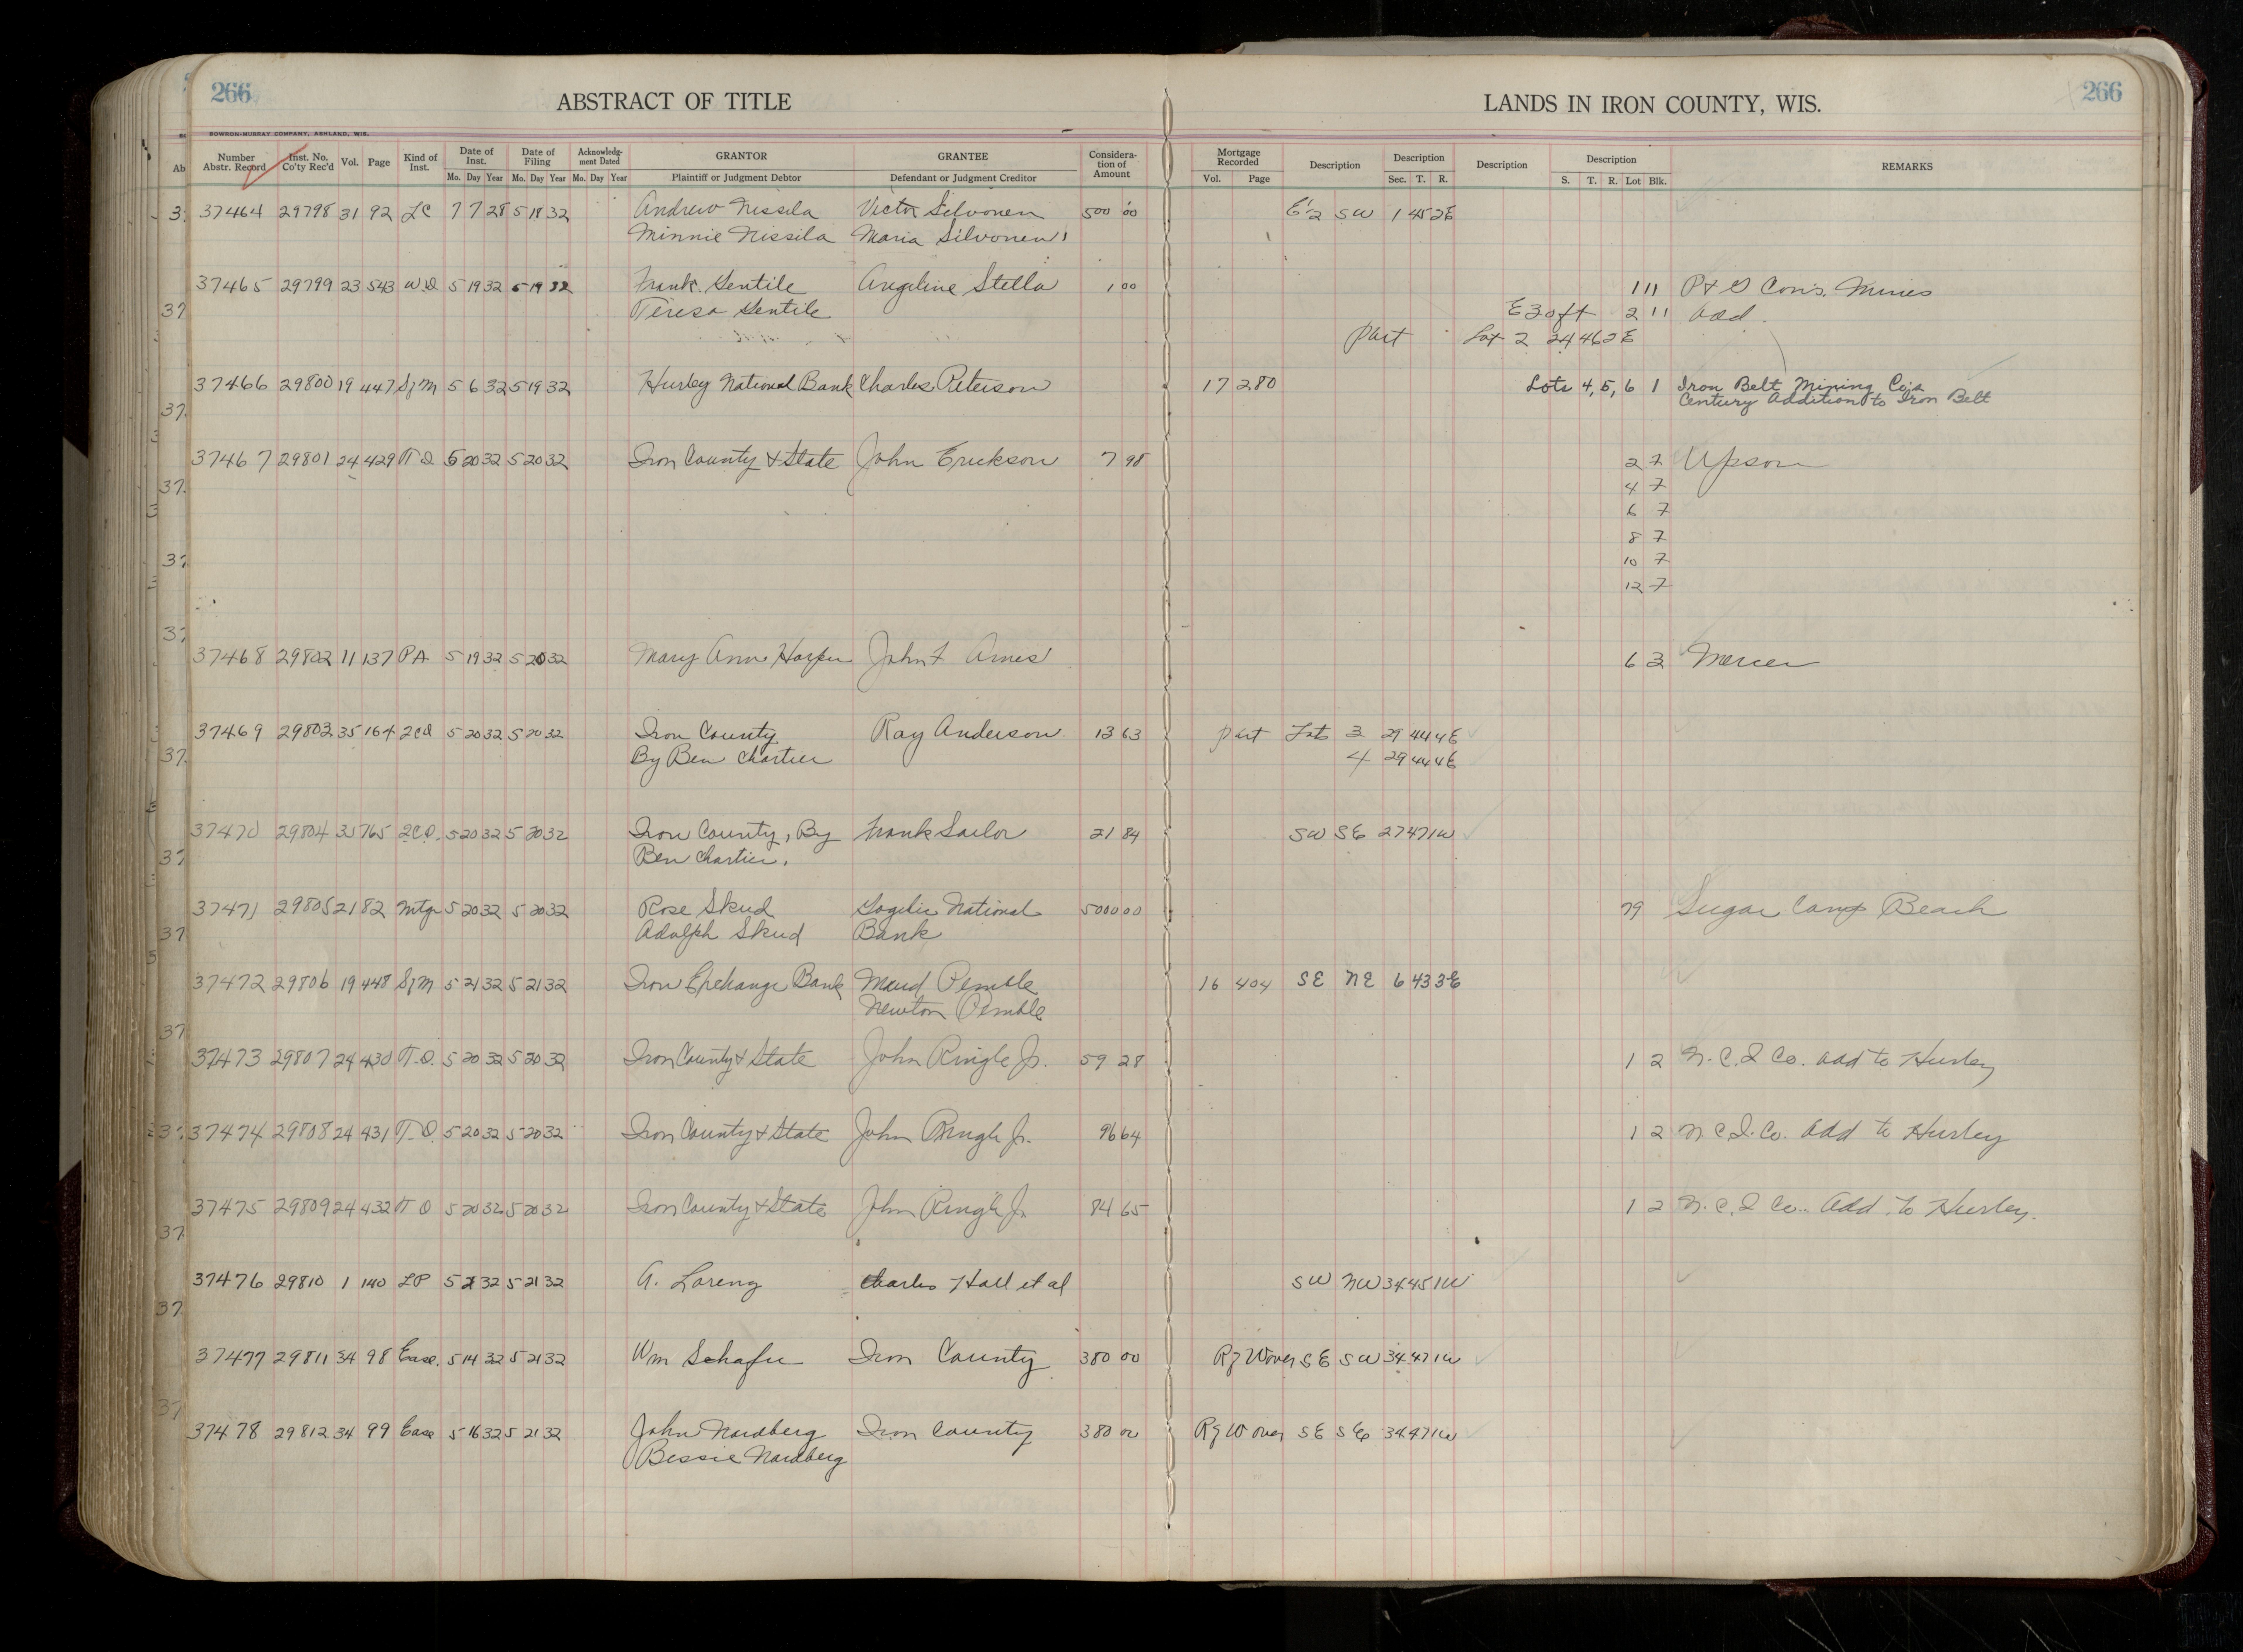 266
ABSTRACT OF TITLE
LANDS IN IRON COUNTY, WIS.
266
BOWRON-MURRAY COMPANY, ASHLAND, WIS.
Number Abstr. Record Inst. No. Co'ty Rec'd Vol. Page Kind of Inst. Date of Inst. Date of Filing Acknowledgment Dated GRANTOR GRANTEE Consideration of Amount Mortgage Recorded Description Description Description Description REMARKS
Mo. Day Year Mo. Day Year Mo. Day Year Plaintiff or Judgment Debtor Defendant or Judgment Creditor Vol. Page Sec. T. R. S. T. R. Lot Blk.
37464 29798 31 92 LC 7 7 28 5 18 32 Andrew Nissila Victor Silvonen 500 00 E½ SW 1 45 2E
Minnie Nissila Maria Silvonen
37465 29799 23 543 W.D 5 19 32 5 19 32 Frank Gentile Angeline Stella 1 00 1 11 P & G Cons. Mines
Teresa Gentile E 30 ft 2 11 add.
Part Lot 2 24 46 2E
37466 29800 19 447 S/M 5 6 32 5 19 32 Hurley National Bank Charles Peterson 17 280 Lots 4, 5, 6 1 Iron Belt Mining Co's
Century Addition to Iron Belt
37467 29801 24 429 T D 5 20 32 5 20 32 Iron County & State John Erickson 7 98 2 7 Upson
4 7
6 7
8 7
10 7
12 7
37468 29802 11 137 PA 5 19 32 5 20 32 Mary Anne Harper John F Ames 6 3 Mercer
37469 29803 35 164 2CD 5 20 32 5 20 32 Iron County Ray Anderson 13 63 part Lots 3 29 44 4E
By Ben Chartier 4 29 44 4E
37470 29804 35 165 2CD. 5 20 32 5 20 32 Iron County, By Frank Sailor 21 84 SW SE 27 47 1W
Ben Chartier.
37471 29805 21 82 Mtg 5 20 32 5 20 32 Rose Skud Gogebic National 5000 00 79 Sugar Camp Beach
Adolph Skud Bank
37472 29806 19 448 S/M 5 21 32 5 21 32 Iron Exchange Bank Maud Pemble 16 404 SE NE 6 43 3E
Newton Pemble
37473 29807 24 430 T.D. 5 20 32 5 20 32 Iron County & State John Ringle Jr. 59 28 1 2 N.C.I Co. add to Hurley
37474 29808 24 431 T.D. 5 20 32 5 20 32 Iron County & State John Ringle Jr. 96 64 1 2 N C.I. Co. add to Hurley
37475 29809 24 432 T D 5 20 32 5 20 32 Iron County & State John Ringle Jr. 84 65 1 2 N.C.I Co. Add. to Hurley.
37476 29810 1 140 LP 5 21 32 5 21 32 A. Lorenz Charles Hall et al SW NW 34 45 1W
37477 29811 34 98 Ease. 5 14 32 5 21 32 Wm Schafer Iron County 380 00 R/W over SE SW 34 47 1W
37478 29812 34 99 Ease 5 16 32 5 21 32 John Nordberg Iron County 380 00 R/W over SE SE 34 47 1W
Bessie Nordberg